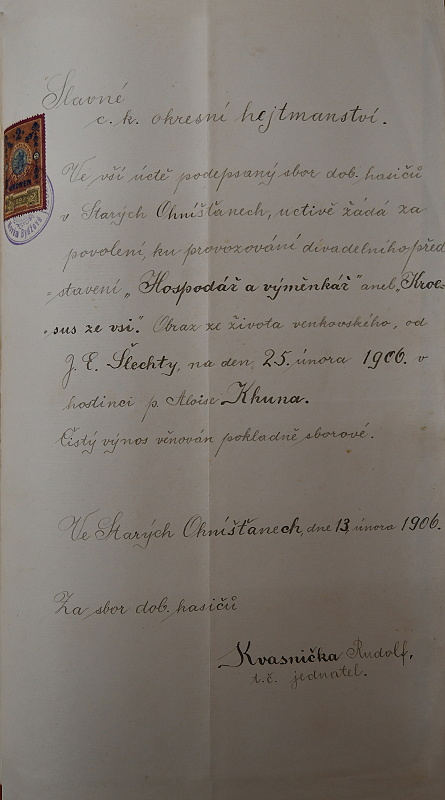 Slavné
c. k. okresní hejtmanství.
Ve vší úctě podepsaný sbor dob. hasičů
v Starých Ohníšťanech, uctivě žádá za
povolení, ku provozování divadelního před
=stavení „Hospodář a výměnkář" aneb „Kroe-
=sus ze vsi." Obraz ze života venkovského, od
J. E. Šlechty, na den 25. února 1906. v
hostinci p. Aloise Khuna.
Čistý výnos věnován pokladně sborové.
Ve Starých Ohníšťanech, dne 13, února 1906.
Za sbor dob. hasičů
Kvasnička Rudolf,
t. č. jednatel.